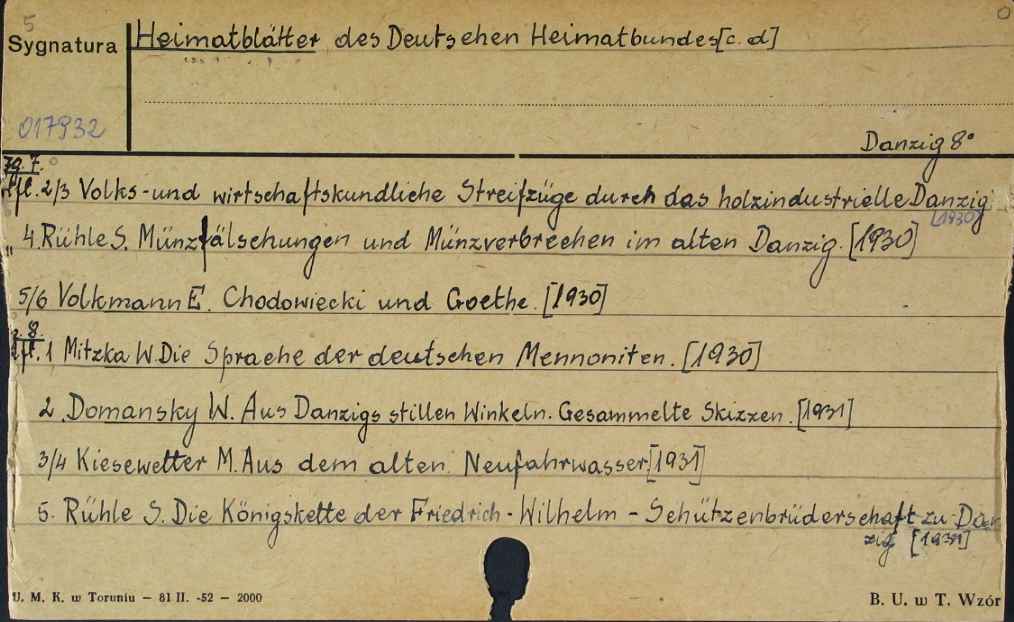 5
Sygnatura
Heimatblätter des Deutschen Heimatbundes [c. d]
017932
Danzig 8°
Jg. 7.
Hft. 2/3 Volks- und wirtschaftskundliche Streifzüge durch das holzindustrielle Danzig
[1930]
" 4. Rühle S. Münzfälschungen und Münzverbrechen im alten Danzig. [1930]
5/6 Volkmann E. Chodowiecki und Goethe. [1930]
8.
Hft. 1 Mitzka W. Die Sprache der deutschen Mennoniten. [1930]
2. Domansky W. Aus Danzigs stillen Winkeln. Gesammelte Skizzen. [1931]
3/4 Kiesewetter M. Aus dem alten Neufahrwasser [1931]
5. Rühle S. Die Königskette der Friedrich - Wilhelm - Schützenbrüderschaft zu Dan
zig [1931]
U. M. K. w Toruniu — 81 II. -52 — 2000
B. U. w T. Wzór